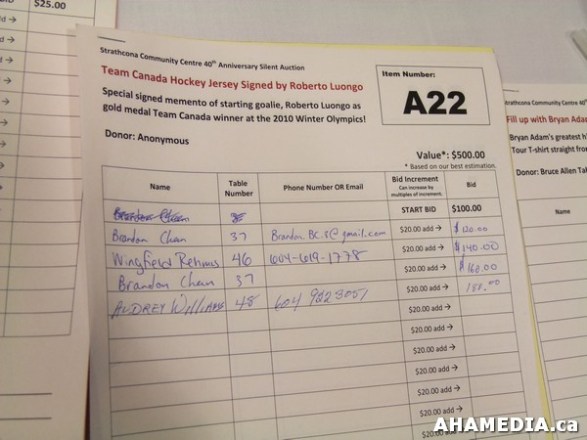 $25.00
Strathcona Community Centre 40th Anniversary Silent Auction
Team Canada Hockey Jersey Signed by Roberto Luongo
Special signed memento of starting goalie, Roberto Luongo as
gold medal Team Canada winner at the 2010 Winter Olympics!
Donor: Anonymous
Item Number:
A22
Value*: $500.00
* Based on our best estimation.
Name Table Number Phone Number OR Email Bid Increment Can increase by multiples of increment. Bid
START BID $100.00
Brandon Chan 37 Brandon.BC.8@gmail.com $20.00 add → $120.00
Wingfield 46 604-619-1778 $20.00 add → $140.00
Brandon Chan 37 $20.00 add → $160.00
AUDREY WILLIAMS 48 604 $20.00 add → 180.00
$20.00 add →
$20.00 add →
$20.00 add →
$20.00 add →
$20.00 add →
$20.00 add →
Strathcona Community Centre 40
Fill up with Bryan Ada
Bryan Adam's greatest h
Tour T-shirt straight from
Donor: Bruce Allen Tal
Name
AHAMEDIA.ca